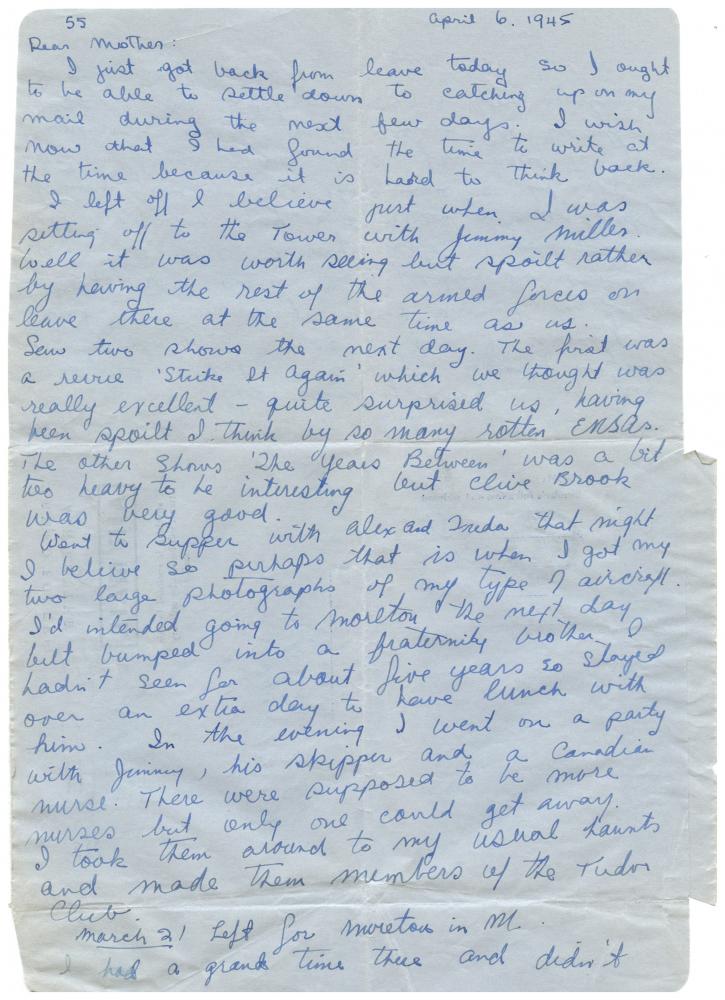 55 April 6. 1945
Dear Mother:
I just got back from leave today so I ought
to be able to settle down to catching up on my
mail during the next few days. I wish
now that I had found the time to write at
the time because it is hard to think back.
I left off I believe just when I was
setting off to the Tower with Jimmy Miller.
Well it was worth seeing but spoilt rather
by having the rest of the armed forces on
leave there at the same time as us.
Saw two shows the next day. The first was
a revue 'Strike It Again' which we thought was
really excellent – quite surprised us, having
been spoilt I think by so many rotten ENSAs.
The other shows 'The Years Between' was a bit
too heavy to be interesting but Clive Brook
was very good.
Went to supper with Alex and Freda that night
I believe so perhaps that is when I got my
two large photographs of my type of aircraft.
I'd intended going to Moreton the next day
but bumped into a fraternity brother I
hadn't seen for about five years so stayed
over an extra day to have lunch with
him. In the evening I went on a party
with Jimmy, his skipper and a Canadian
nurse. There were supposed to be more
nurses but only one could get away.
I took them around to my usual haunts
and made them members of the Tudor
Club.
March 21 Left for Moreton in M.
I had a grand time there and didn't